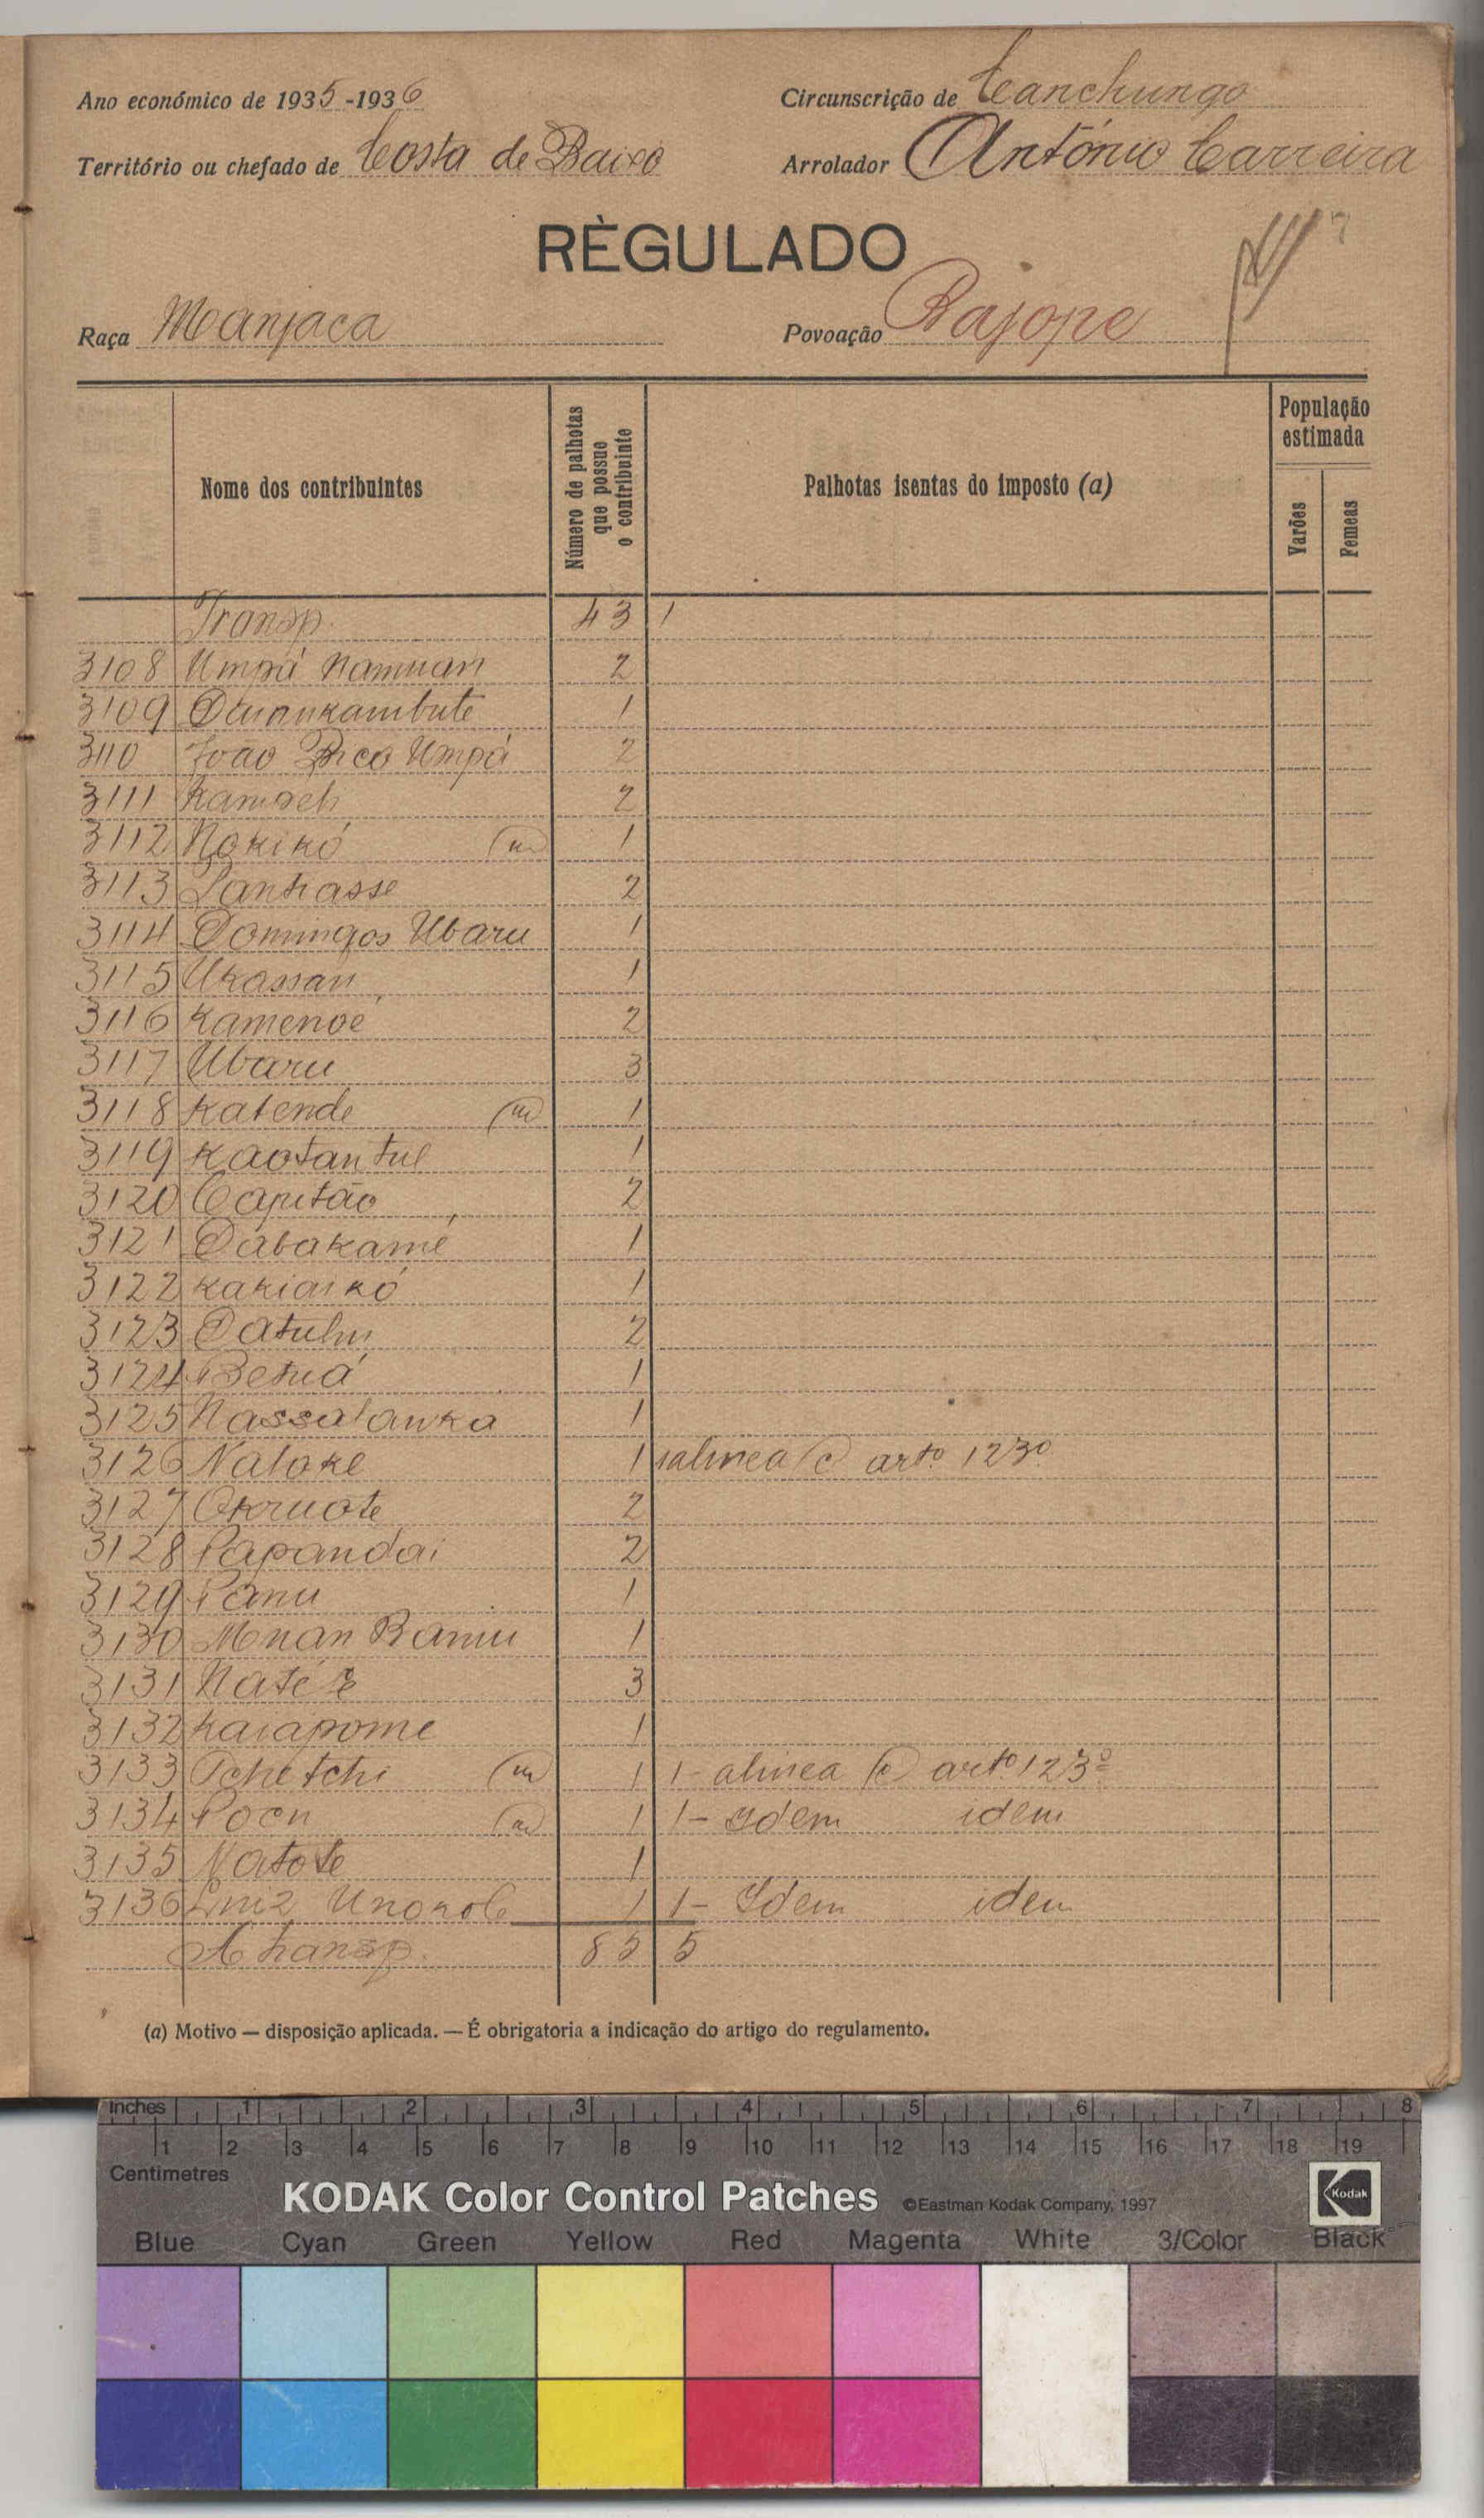 Ano económico de 1935-1936
Circunscrição de Canchungo
Território ou chefado de Costa de Baixo
Arrolador António Carreira
RÈGULADO
Raça Manjaca
Povoação Bajope
Nome dos contribuintes
Número de palhotas que possue o contribuinte
Palhotas isentas do imposto (a)
População estimada
Varões
Femeas
Transp. 43 1
3108 Umpá Namuan 2
3109 1
3110 João Umpá 2
3111 2
3112 Nokikó (m) 1
3113 2
3114 Domingos Ubaru 1
3115 Ukassan 1
3116 Kamenoé 2
3117 Ubaru 3
3118 Katende (m) 1
3119 Kaotantul 1
3120 Capitão 2
3121 Dábakamé 1
3122 1
3123 2
3124 Betuá 1
3125 1
3126 Natoke 1 1 alinea (c) artº 123º
3127 Okruote 2
3128 Papandai 2
3129 Panu 1
3130 1
3131 3
3132 Kaiapome 1
3133 Tchetchi (m) 1 1- alinea (c) artº 123º
3134 Pocn (m) 1 1- Idem idem
3135 Natote 1
3136 1 1- Idem idem
A transp. 85 5
(a) Motivo — disposição aplicada. — É obrigatoria a indicação do artigo do regulamento.
Inches 1 2 3 4 5 6 7 8
1 2 3 4 5 6 7 8 9 10 11 12 13 14 15 16 17 18 19
Centimetres
KODAK Color Control Patches ©Eastman Kodak Company, 1997 Kodak
Blue Cyan Green Yellow Red Magenta White 3/Color Black